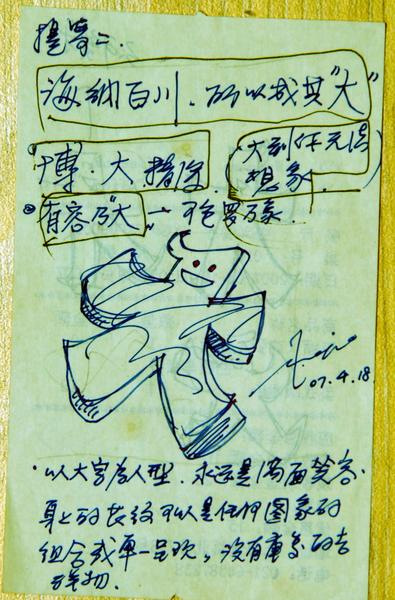 提案二.
海纳百川.所以成其"大"
博.大精深
(大到你无法
想象.)
②有容乃"大"—包罗万象.
07.4.18
·以大字为人型.永远是满面笑容.
身上的花纹可以是任何图象的
组合或单一呈现,没有重复的